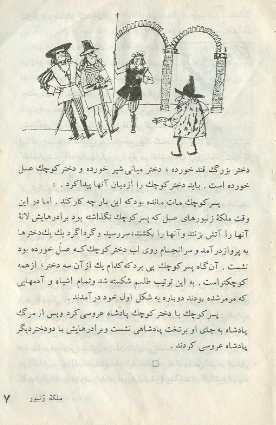 دختر بزرگ قند خورده ، دختر میانی شیر خورده و دختر کوچک عسل
خورده است . باید دختر کوچک را ازمیان آنها پیدا کرد .
پسر کوچک مات مانده بود که این بار چه کار کند . اما در این
وقت ملکهٔ زنبورهای عسل که پسر کوچک نگذاشته بود برادرهایش لانهٔ
آنها را آتش بزنند و آنها را بکشند، سررسید و گرداگرد یک یک دخترها
به پرواز درآمد و سرانجام روی لب دختر کوچک که عسل خورده بود
نشست . آن گاه پسر کوچک پی برد که کدام یک از آن سه دختر ، از همه
کوچکتر است . به این ترتیب طلسم شکسته شد وتمام اشیاء و آدمهایی
که مرمر شده بودند دوباره به شکل اول خود در آمدند .
پسر کوچک با دختر کوچک پادشاه عروسی کرد و پس از مرگ
پادشاه به جای او بر تخت پادشاهی نشست و برادرهایش با دو دختر دیگر
پادشاه عروسی کردند .
ملکهٔ زنبور ۷